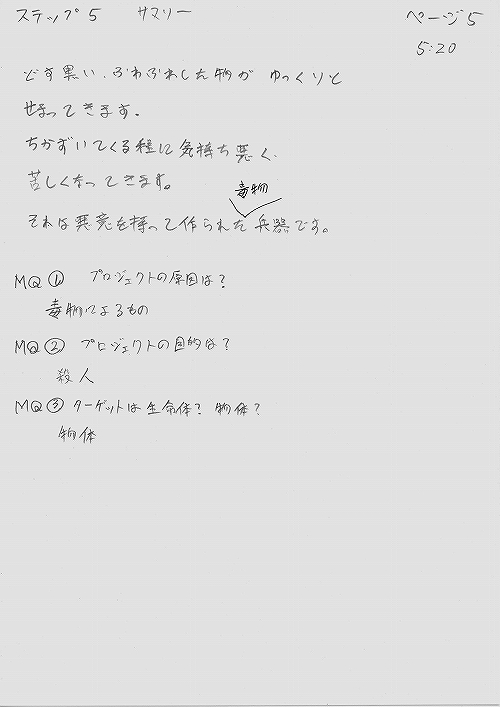 ステップ5 サマリー ページ5
5:20
どす黒い、ふわふわした物が ゆっくりと
せまってきます。
ちかずいてくる程に気持ち悪く、
苦しくなってきます。
毒物
それは悪意を持って作られた兵器です。
MQ① プロジェクトの原因は?
毒物によるもの
MQ② プロジェクトの目的は?
殺人
MQ③ ターゲットは生命体?物体?
物体